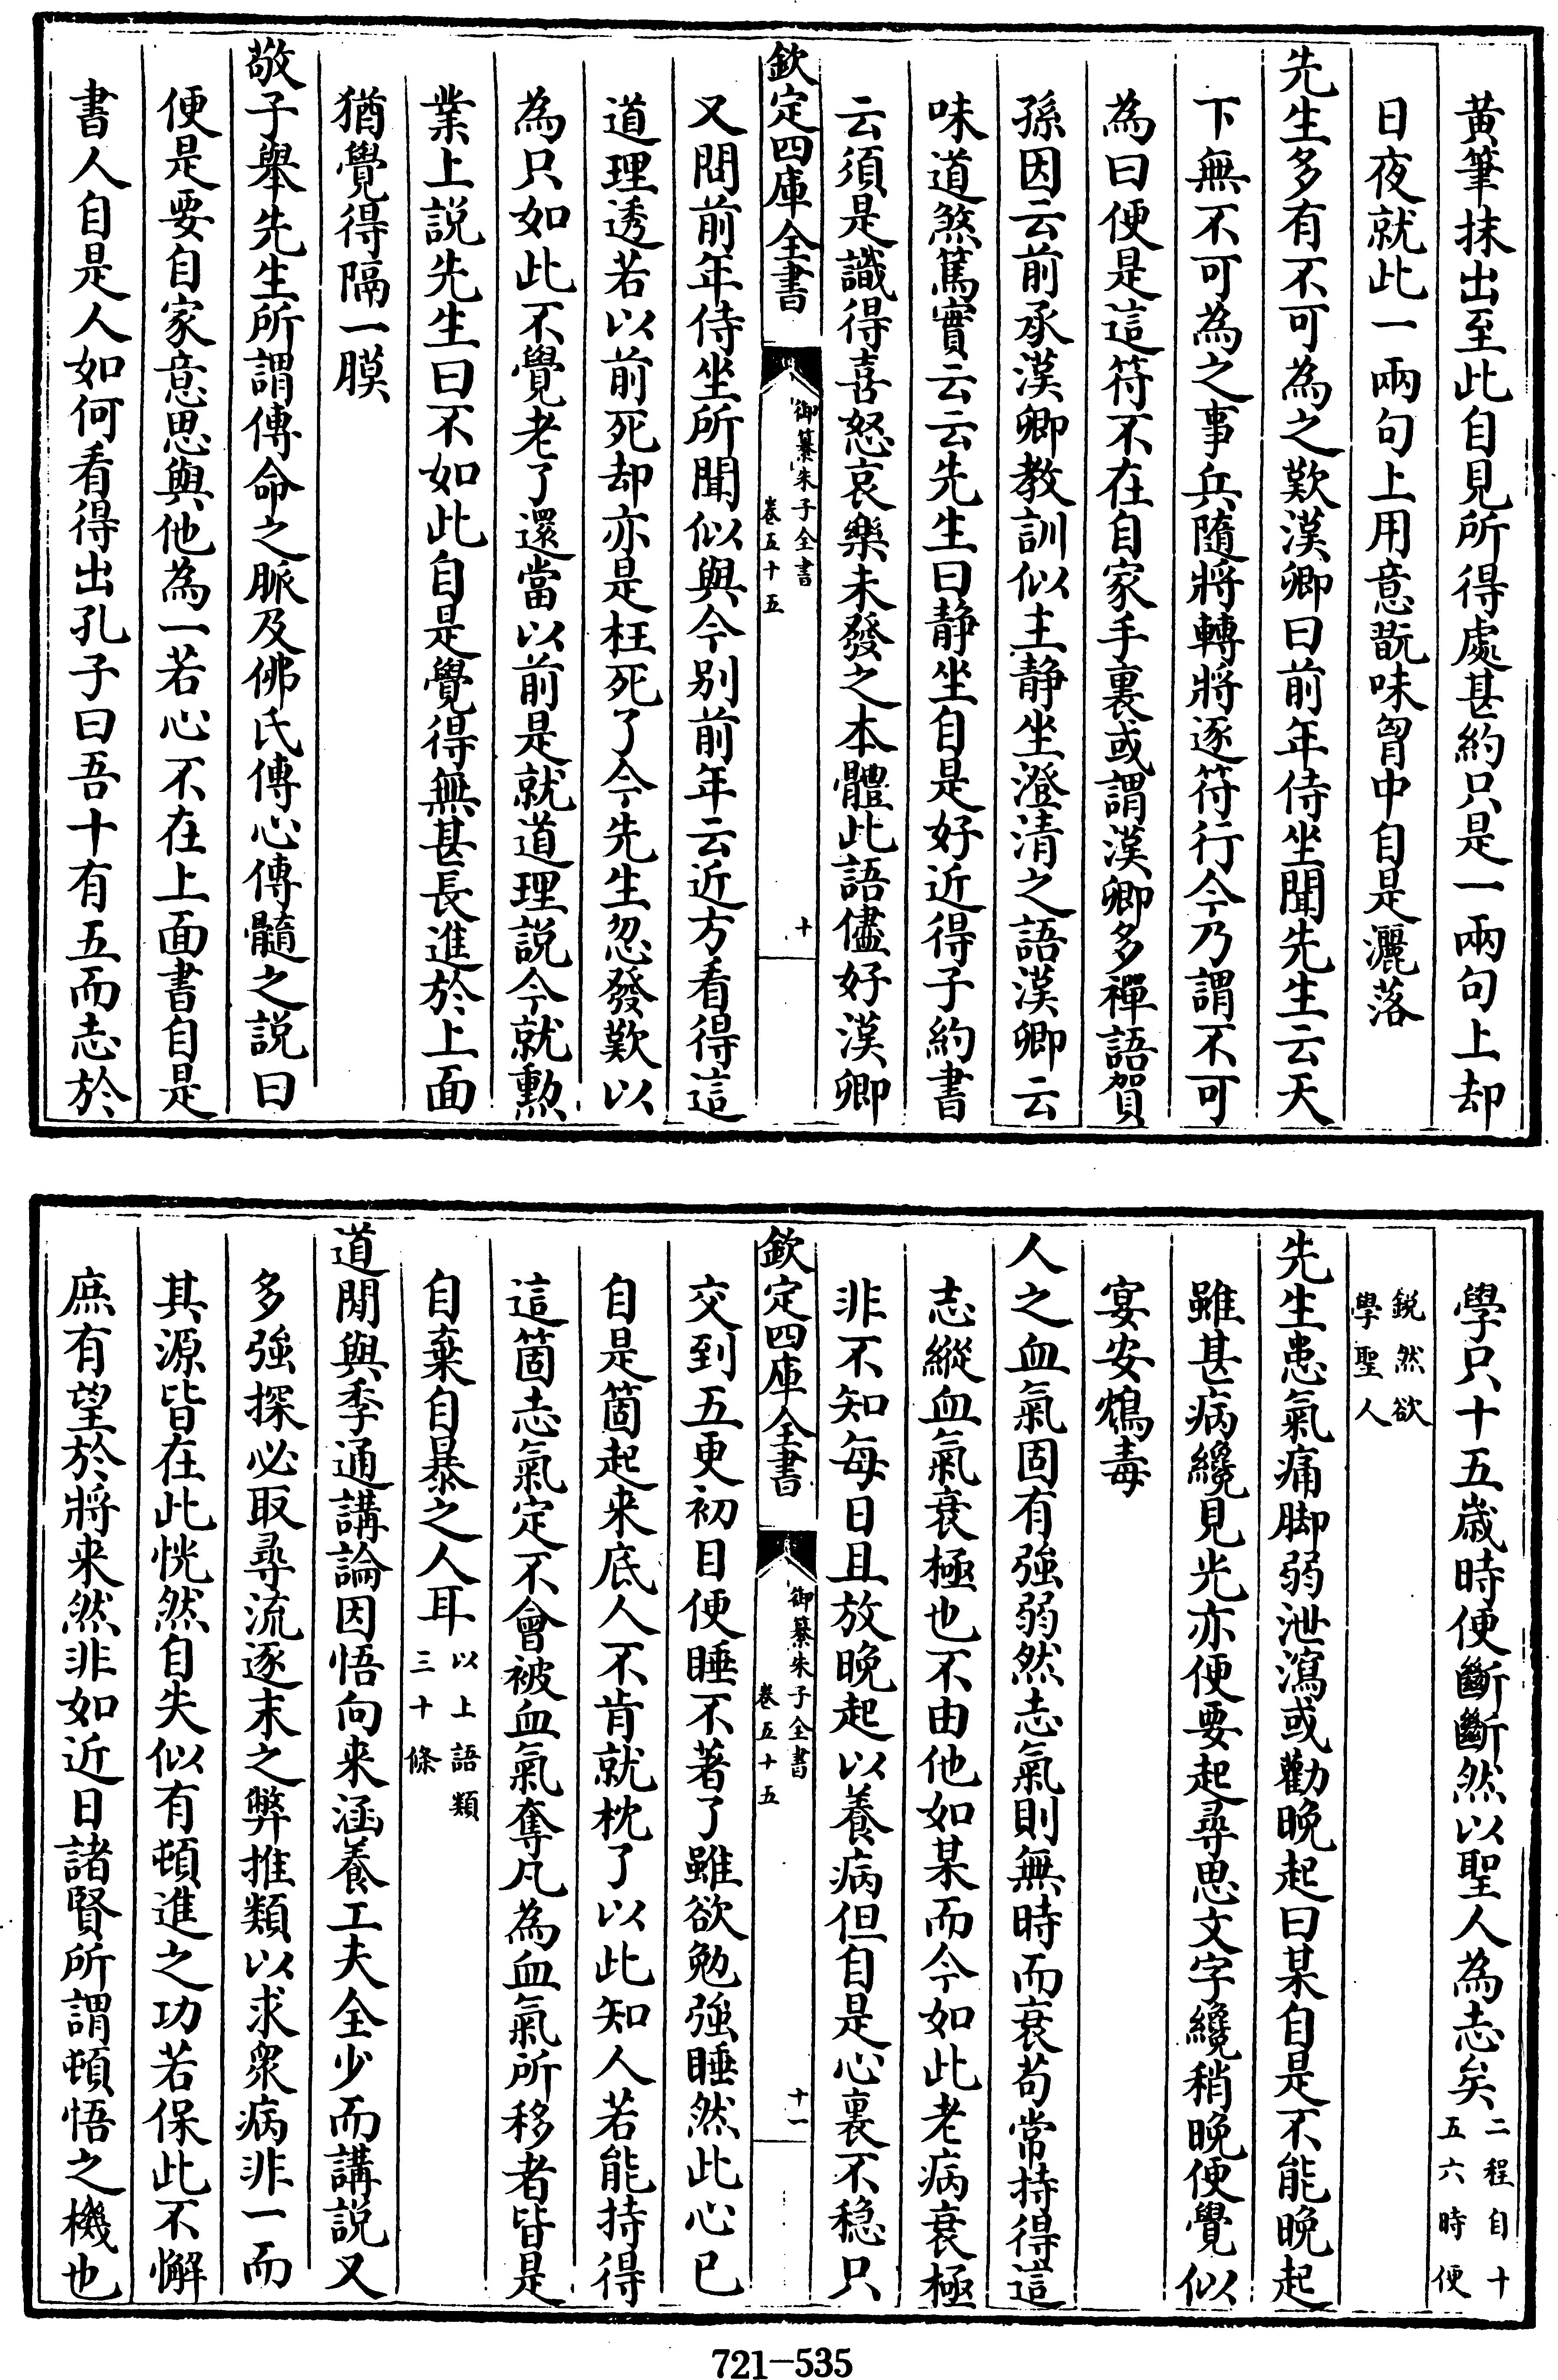 黃筆抹出至此自見所得處甚約只是一兩句上却
日夜就此一兩句上用意翫味胷中自是灑落
先生多有不可為之歎漢卿曰前年侍坐聞先生云天
下無不可為之事兵隨將轉將逐符行今乃謂不可
為曰便是這符不在自家手裏或謂漢卿多禪語賀
孫因云前承漢卿教訓似主靜坐澄清之語漢卿云
味道煞篤實云云先生曰靜坐自是好近得子約書
云須是識得喜怒哀樂未發之本體此語儘好漢卿
欽定四庫全書 御纂朱子全書 卷五十五 十
又問前年侍坐所聞似與今别前年云近方看得這
道理透若以前死却亦是枉死了今先生忽發歎以
為只如此不覺老了還當以前是就道理說今就勲
業上說先生曰不如此自是覺得無甚長進於上面
猶覺得隔一膜
敬子舉先生所謂傳命之脈及佛氏傳心傳髓之說曰
便是要自家意思與他為一若心不在上面書自是
書人自是人如何看得出孔子曰吾十有五而志於
學只十五歲時便斷斷然以聖人為志矣二程自十五六時便
銳然欲學聖人
先生患氣痛脚弱泄瀉或勸晚起曰某自是不能晚起
雖甚病纔見光亦便要起尋思文字纔稍晚便覺似
宴安鴆毒
人之血氣固有強弱然志氣則無時而衰苟常持得這
志縱血氣衰極也不由他如某而今如此老病衰極
非不知每日且放晚起以養病但自是心裏不穩只
欽定四庫全書 御纂朱子全書 卷五十五 十一
交到五更初目便睡不著了雖欲勉強睡然此心已
自是箇起来底人不肯就枕了以此知人若能持得
這箇志氣定不會被血氣奪凡為血氣所移者皆是
自棄自暴之人耳以上語類三十條
道閒與季通講論因悟向来涵養工夫全少而講說又
多強探必取尋流逐末之弊推類以求衆病非一而
其源皆在此恍然自失似有頓進之功若保此不懈
庶有望於將来然非如近日諸賢所謂頓悟之機也
721-535